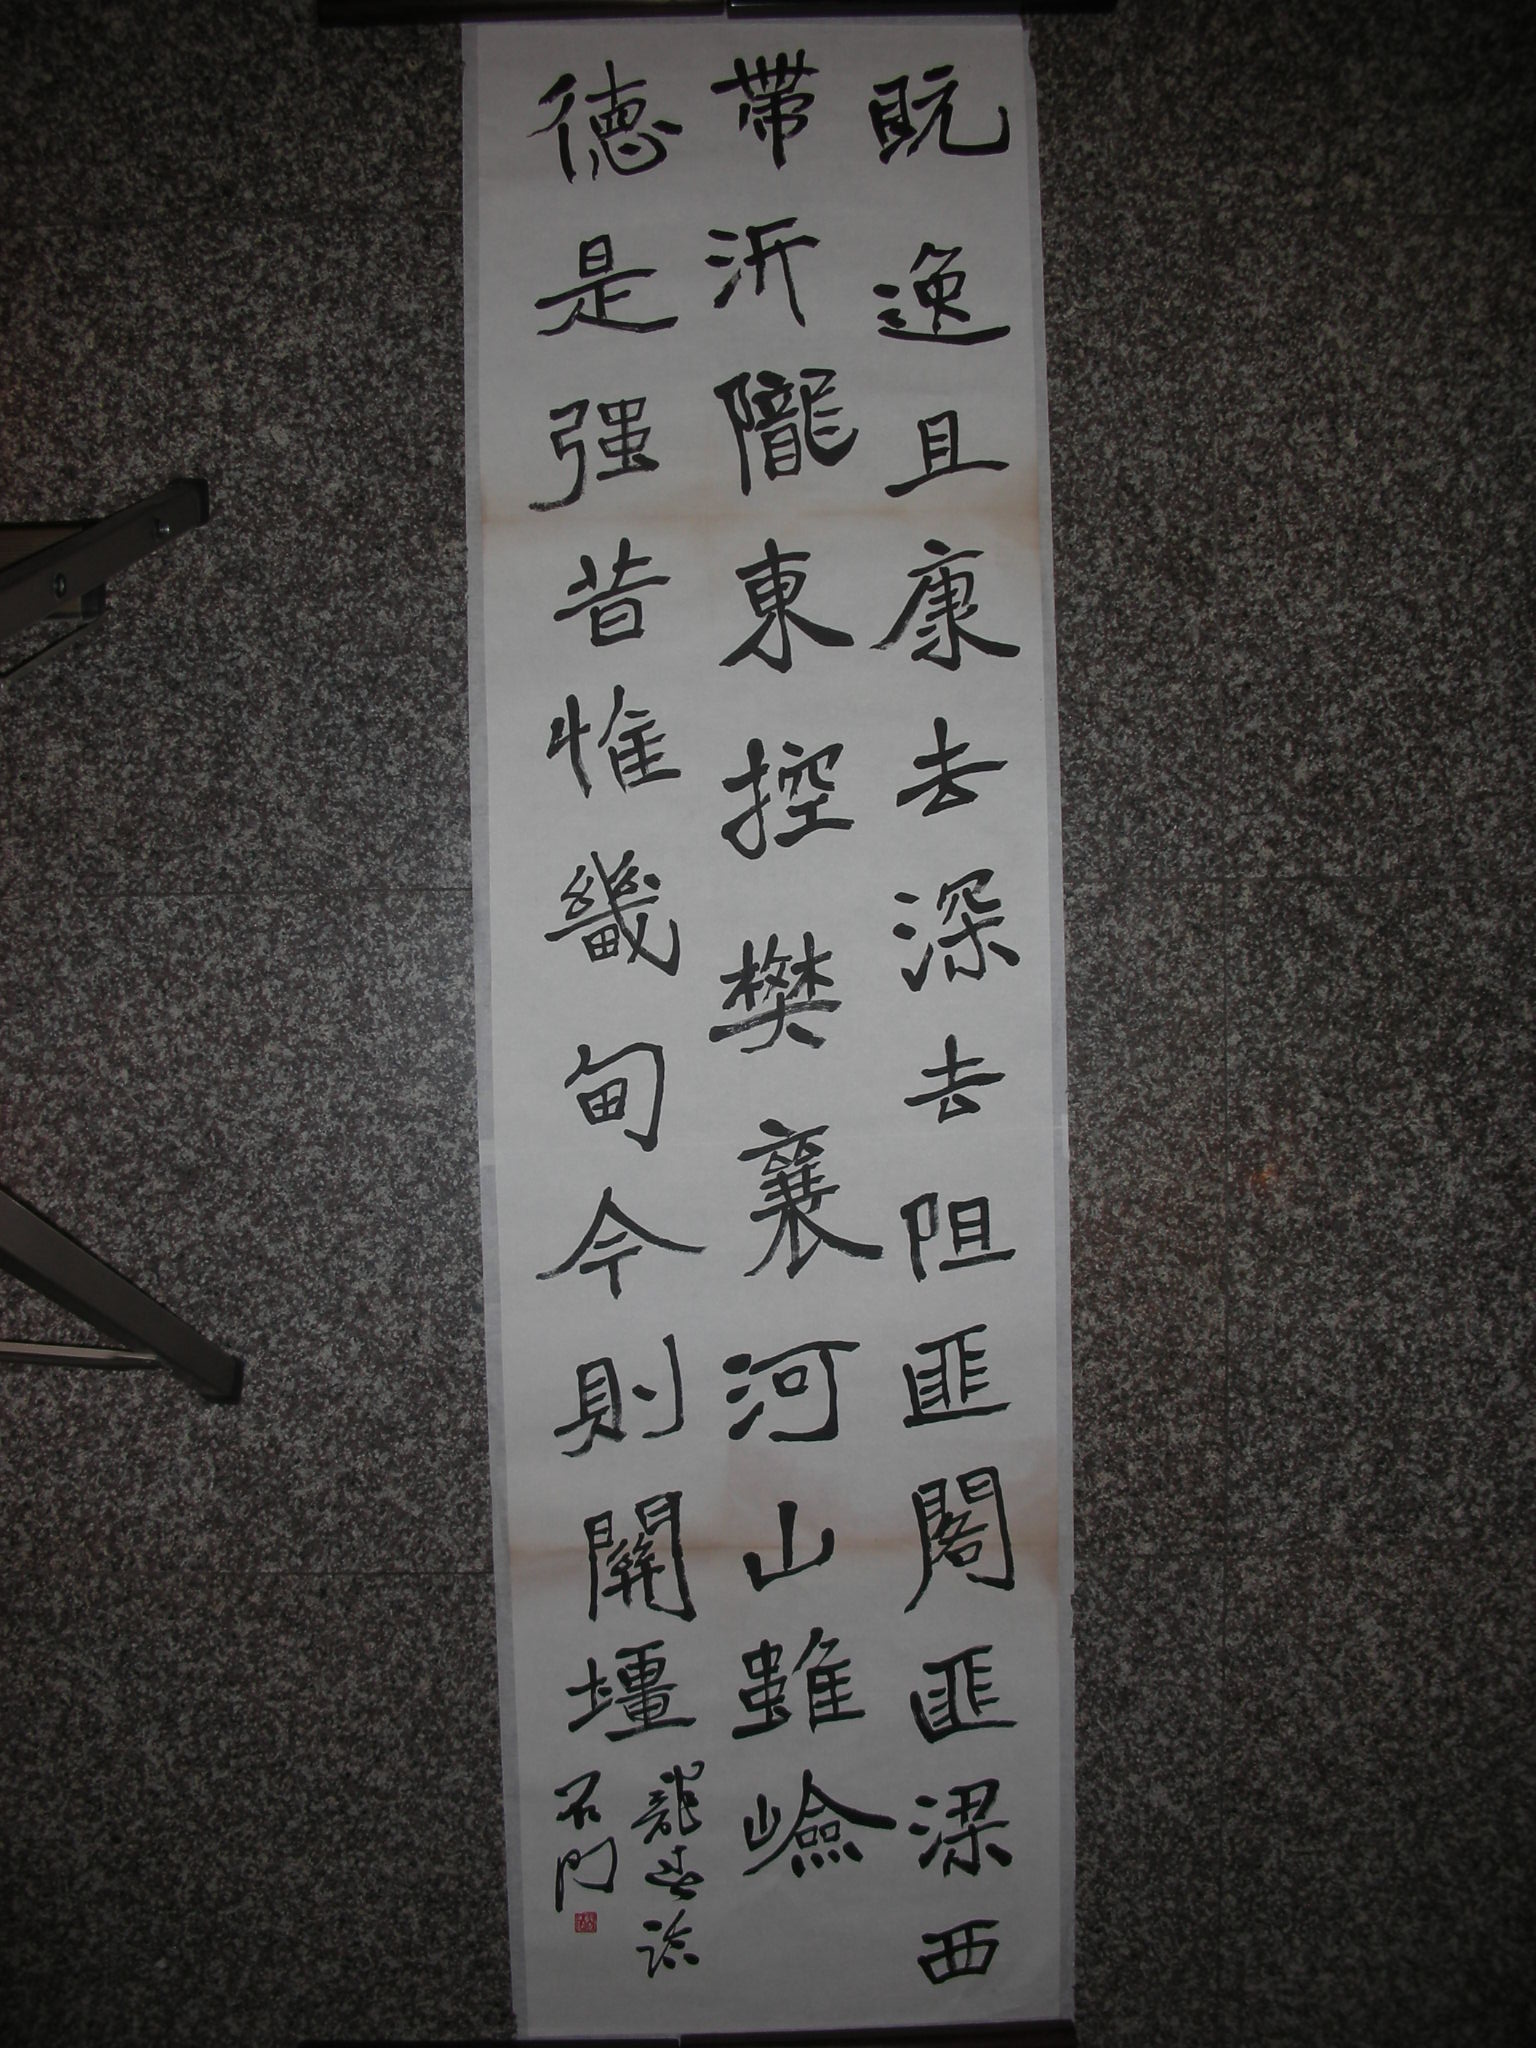 既逸且康去深去阻匪閣匪梁西
帶汧隴東控樊襄河山雖嶮
德是强昔惟畿甸今則關壃
龍春
石門